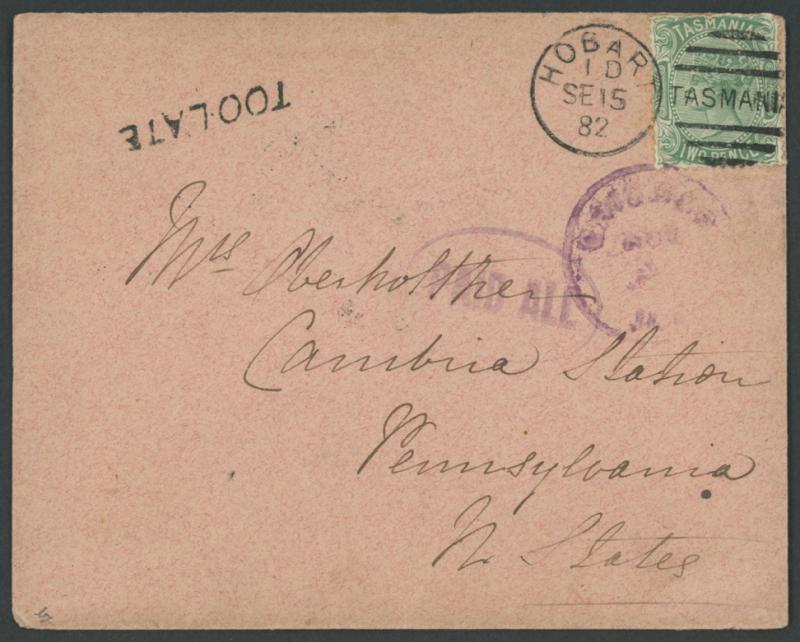 TOO LATE
HOBART
1 D
SE 15
82
TASMANIA
TASMANIA
TWO PENCE
PAID ALL
Mrs Oberholtzer
Cambria Station
Pennsylvania
U States